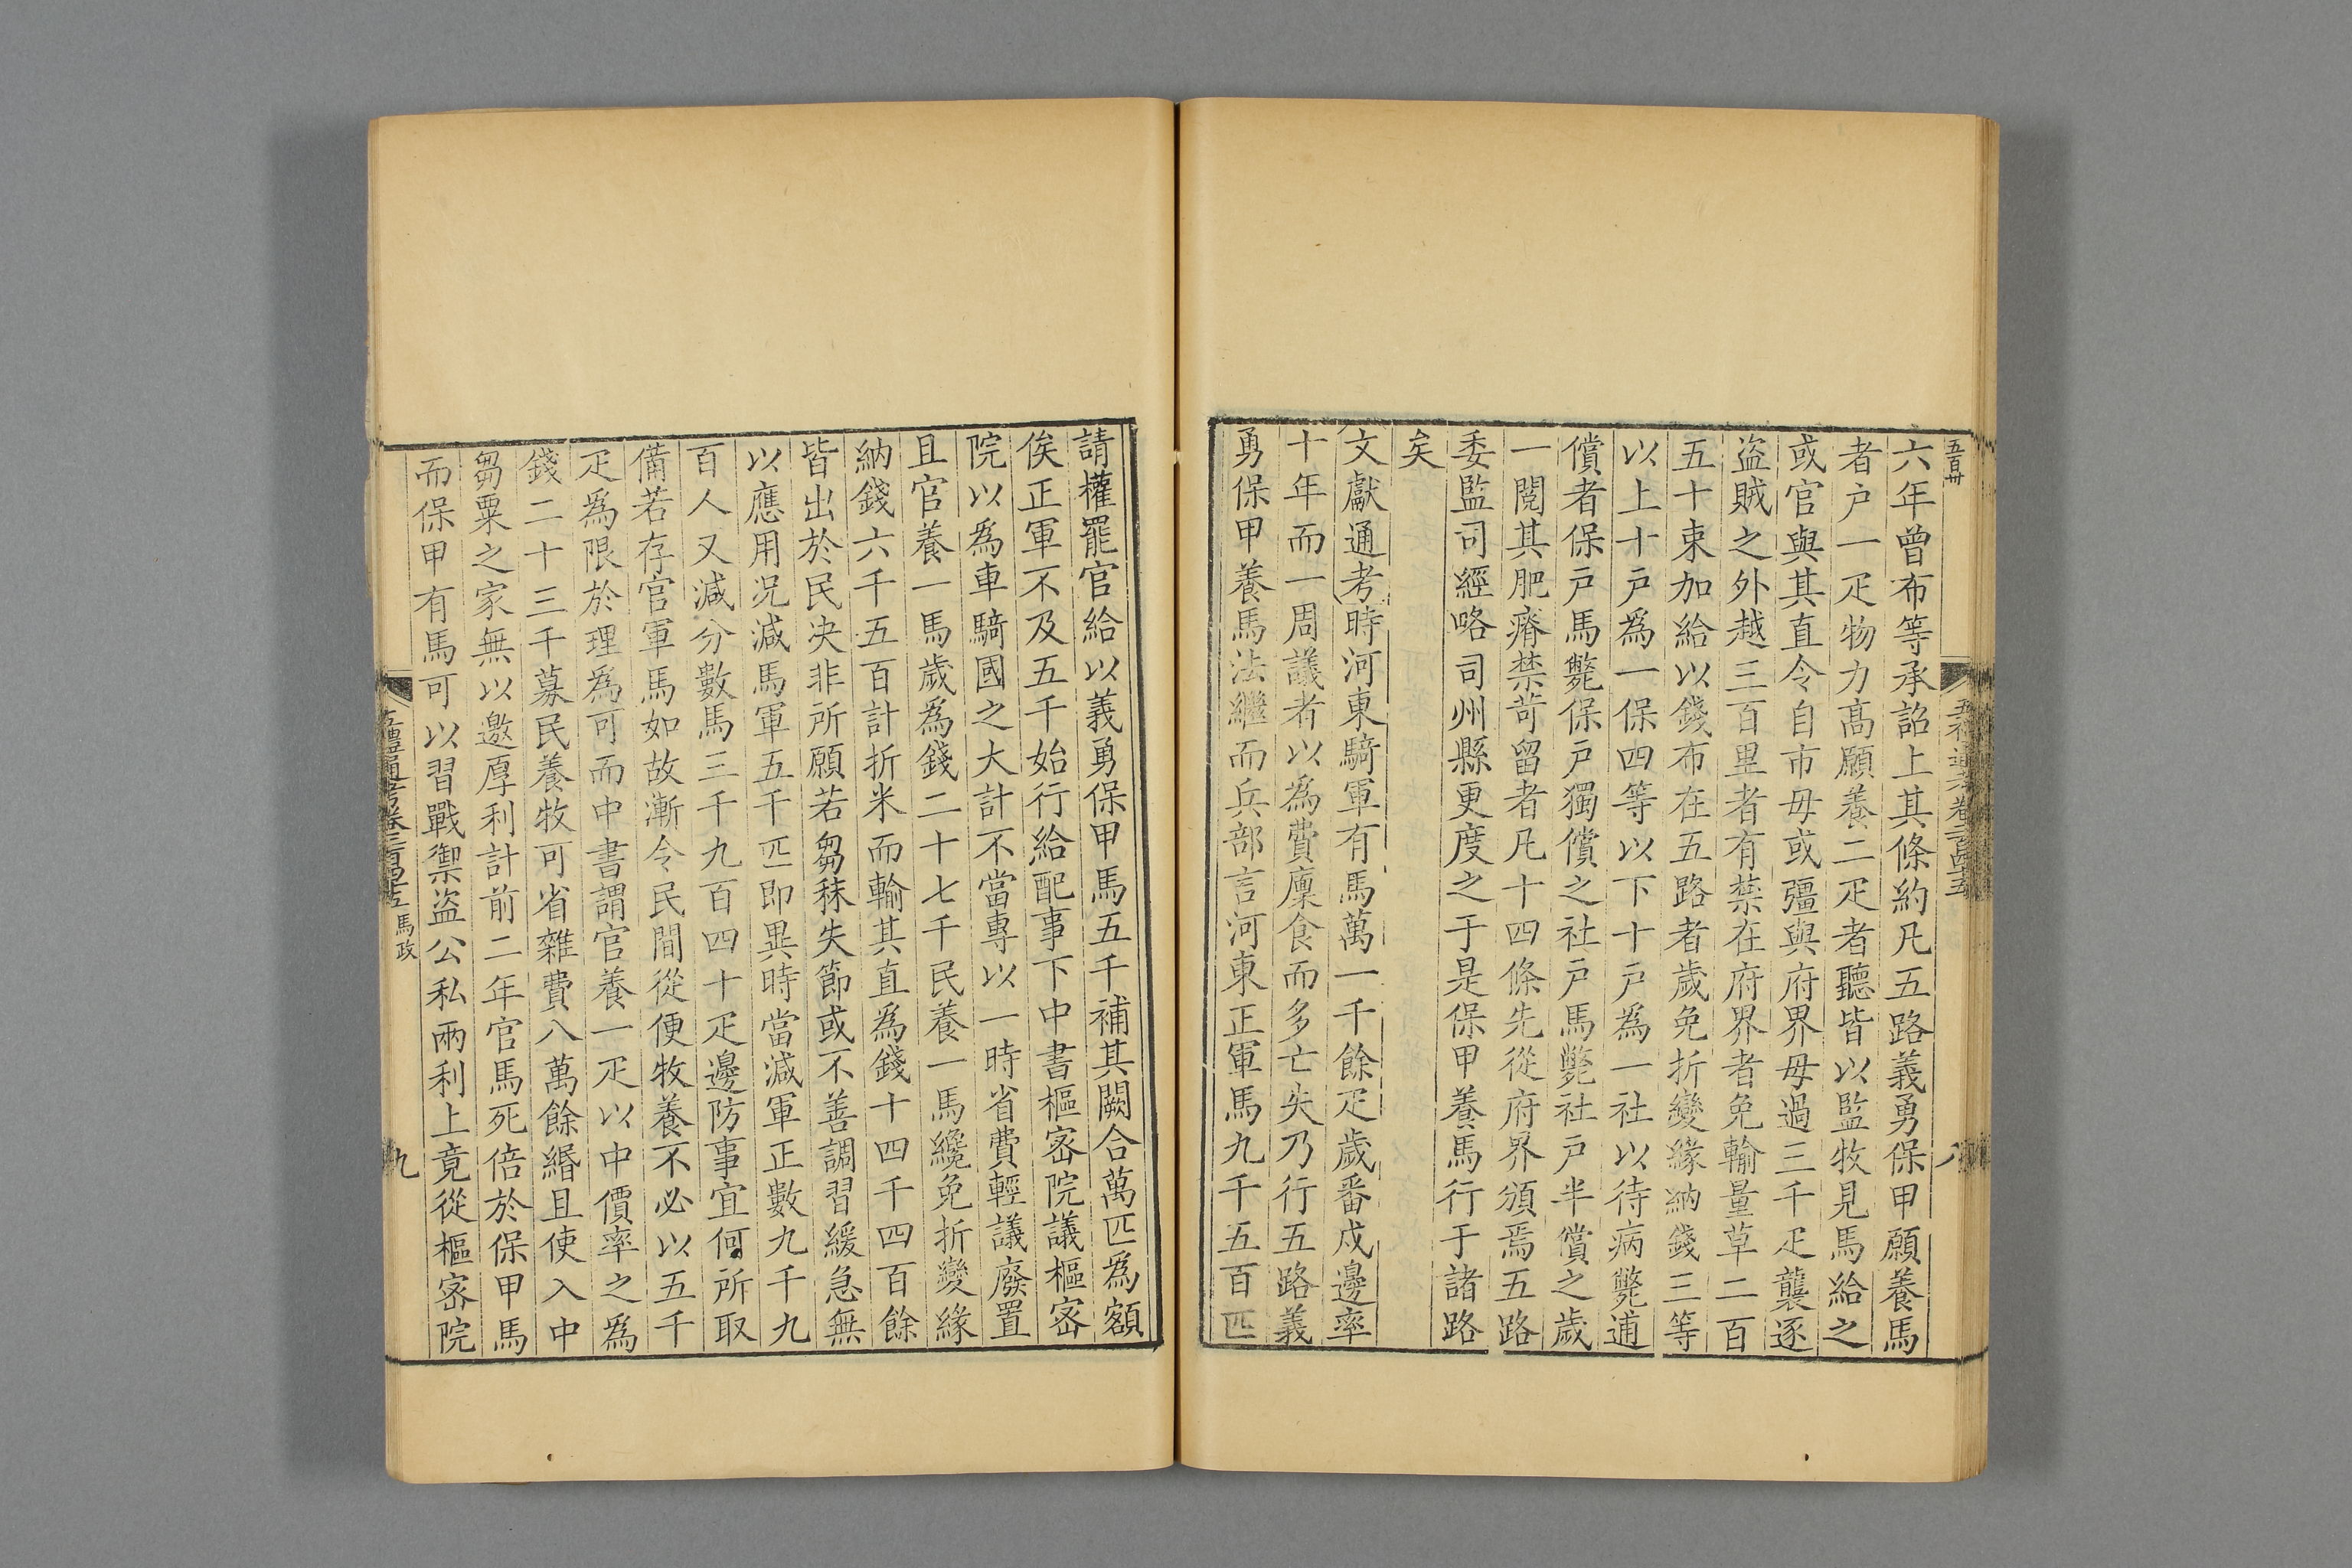 五百卅
六年曾布等承詔上其條約凡五路義勇保甲願養馬
者户一疋物力高願養二疋者聽皆以監牧見馬給之
或官與其直令自市毋或彊與府界毋過三千疋襲逐
盜賊之外越三百里者有禁在府界者免輸量草二百
五十束加給以錢布在五路者歲免折變緣納錢三等
以上十戶爲一保四等以下十戶為一社以待病斃逋
償者保戶馬斃保戶獨償之社戶馬斃社戶半償之歲
一閱其肥瘠禁苛留者凡十四條先從府界頒焉五路
委監司經略司州縣更度之于是保甲養馬行于諸路
矣
文獻通考時河東騎軍有馬萬一千餘疋歲番戍邊率
十年而一周議者以為費廩食而多亡失乃行五路義
勇保甲養馬法繼而兵部言河東正軍馬九千五百匹
請權罷官給以義勇保甲馬五千補其闕合萬匹爲額
俟正軍不及五千始行給配事下中書樞密院議樞密
院以為車騎國之大計不當專以一時省費輕議廢置
且官養一馬歲爲錢二十七千民養一馬纔免折變緣
納錢六千五百計折米而輸其直為錢十四千四百餘
皆出於民決非所願若芻秣失節或不善調習緩急無
以應用况減馬軍五千匹即異時當減軍正數九千九
百人又減分數馬三千九百四十疋邊防事宜何所取
備若存官軍馬如故漸令民間從便牧養不必以五千
疋爲限於理為可而中書謂官養一疋以中價率之為
錢二十三千募民養牧可省雜費八萬餘緡且使入中
芻粟之家無以邀厚利計前二年官馬死倍於保甲馬
而保甲有馬可以習戰禦盜公私兩利上竟從樞密院
五禮通考卷二百四十五 馬政
九